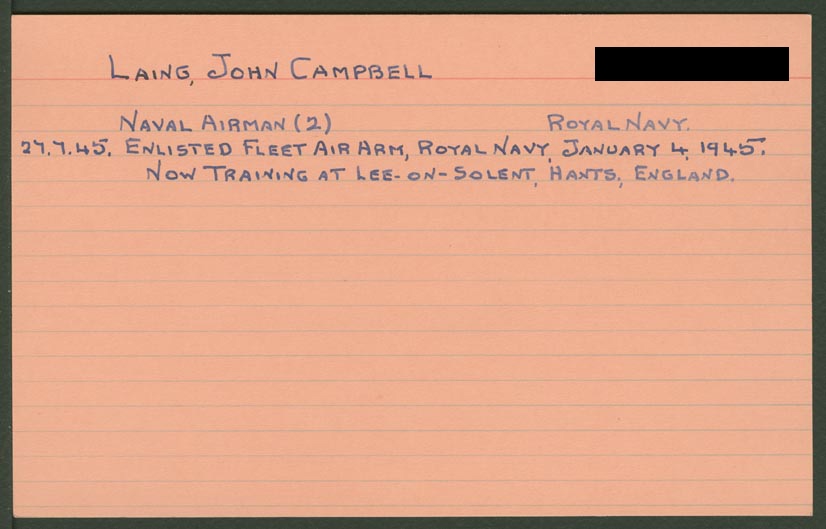 LAING, JOHN CAMPBELL
NAVAL AIRMAN (2) ROYAL NAVY.
27.7.45. ENLISTED FLEET AIR ARM, ROYAL NAVY, JANUARY 4, 1945.
NOW TRAINING AT LEE-ON-SOLENT, HANTS, ENGLAND.